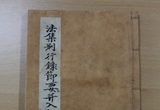 法集別行錄節要并入